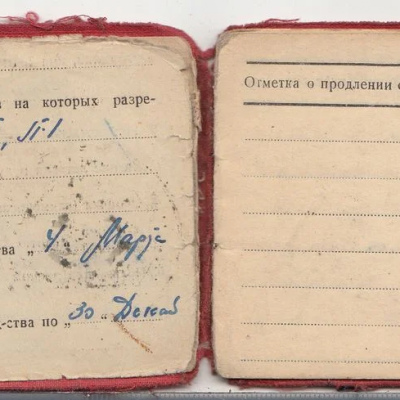 на которых разре-
, П-1
ства „ 4 “ Марта
д-ства по „ 30 “ Декаб
Отметка о продлении с